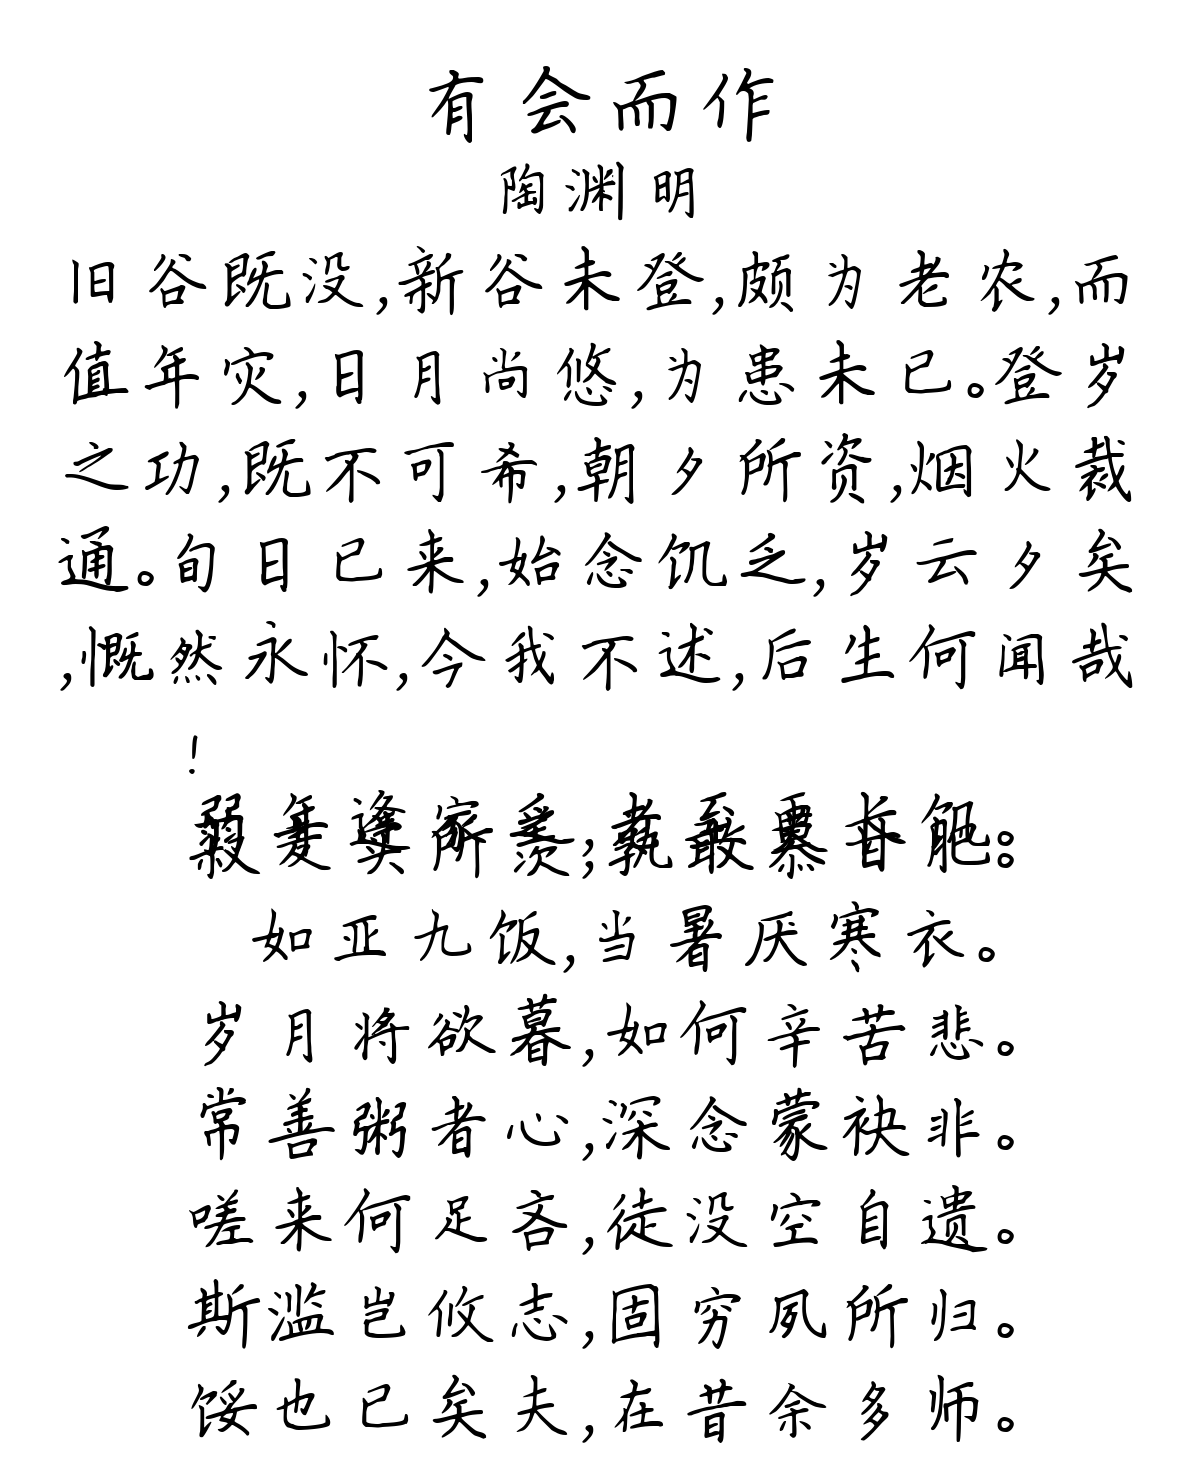 有会而作
陶渊明
旧谷既没,新谷未登,颇为老农,而
值年灾,日月尚悠,为患未已。登岁
之功,既不可希,朝夕所资,烟火裁
通。旬日已来,始念饥乏,岁云夕矣
,慨然永怀,今我不述,后生何闻哉
!
弱年逢家乏,老至更长饥。
菽麦实所羡,孰敢慕甘肥。
如亚九饭,当暑厌寒衣。
岁月将欲暮,如何辛苦悲。
常善粥者心,深念蒙袂非。
嗟来何足吝,徒没空自遗。
斯滥岂攸志,固穷夙所归。
馁也已矣夫,在昔余多师。